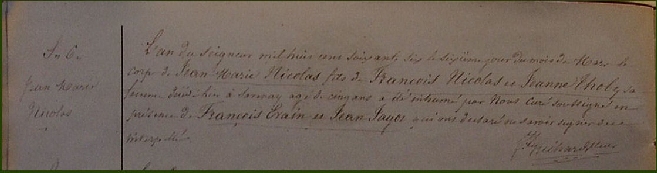 S. 6.
Jean Marie
Nicolas
L'an du seigneur mil huit cent soixante six le sixième jour du mois de Mars le
corps de Jean Marie Nicolas fils de François Nicolas et Jeanne
femme à agé de cinq ans a été inhumé par Nous Curé soussigné en
présence de François et Jean qui ont déclaré ne savoir signer de ce
interpellé